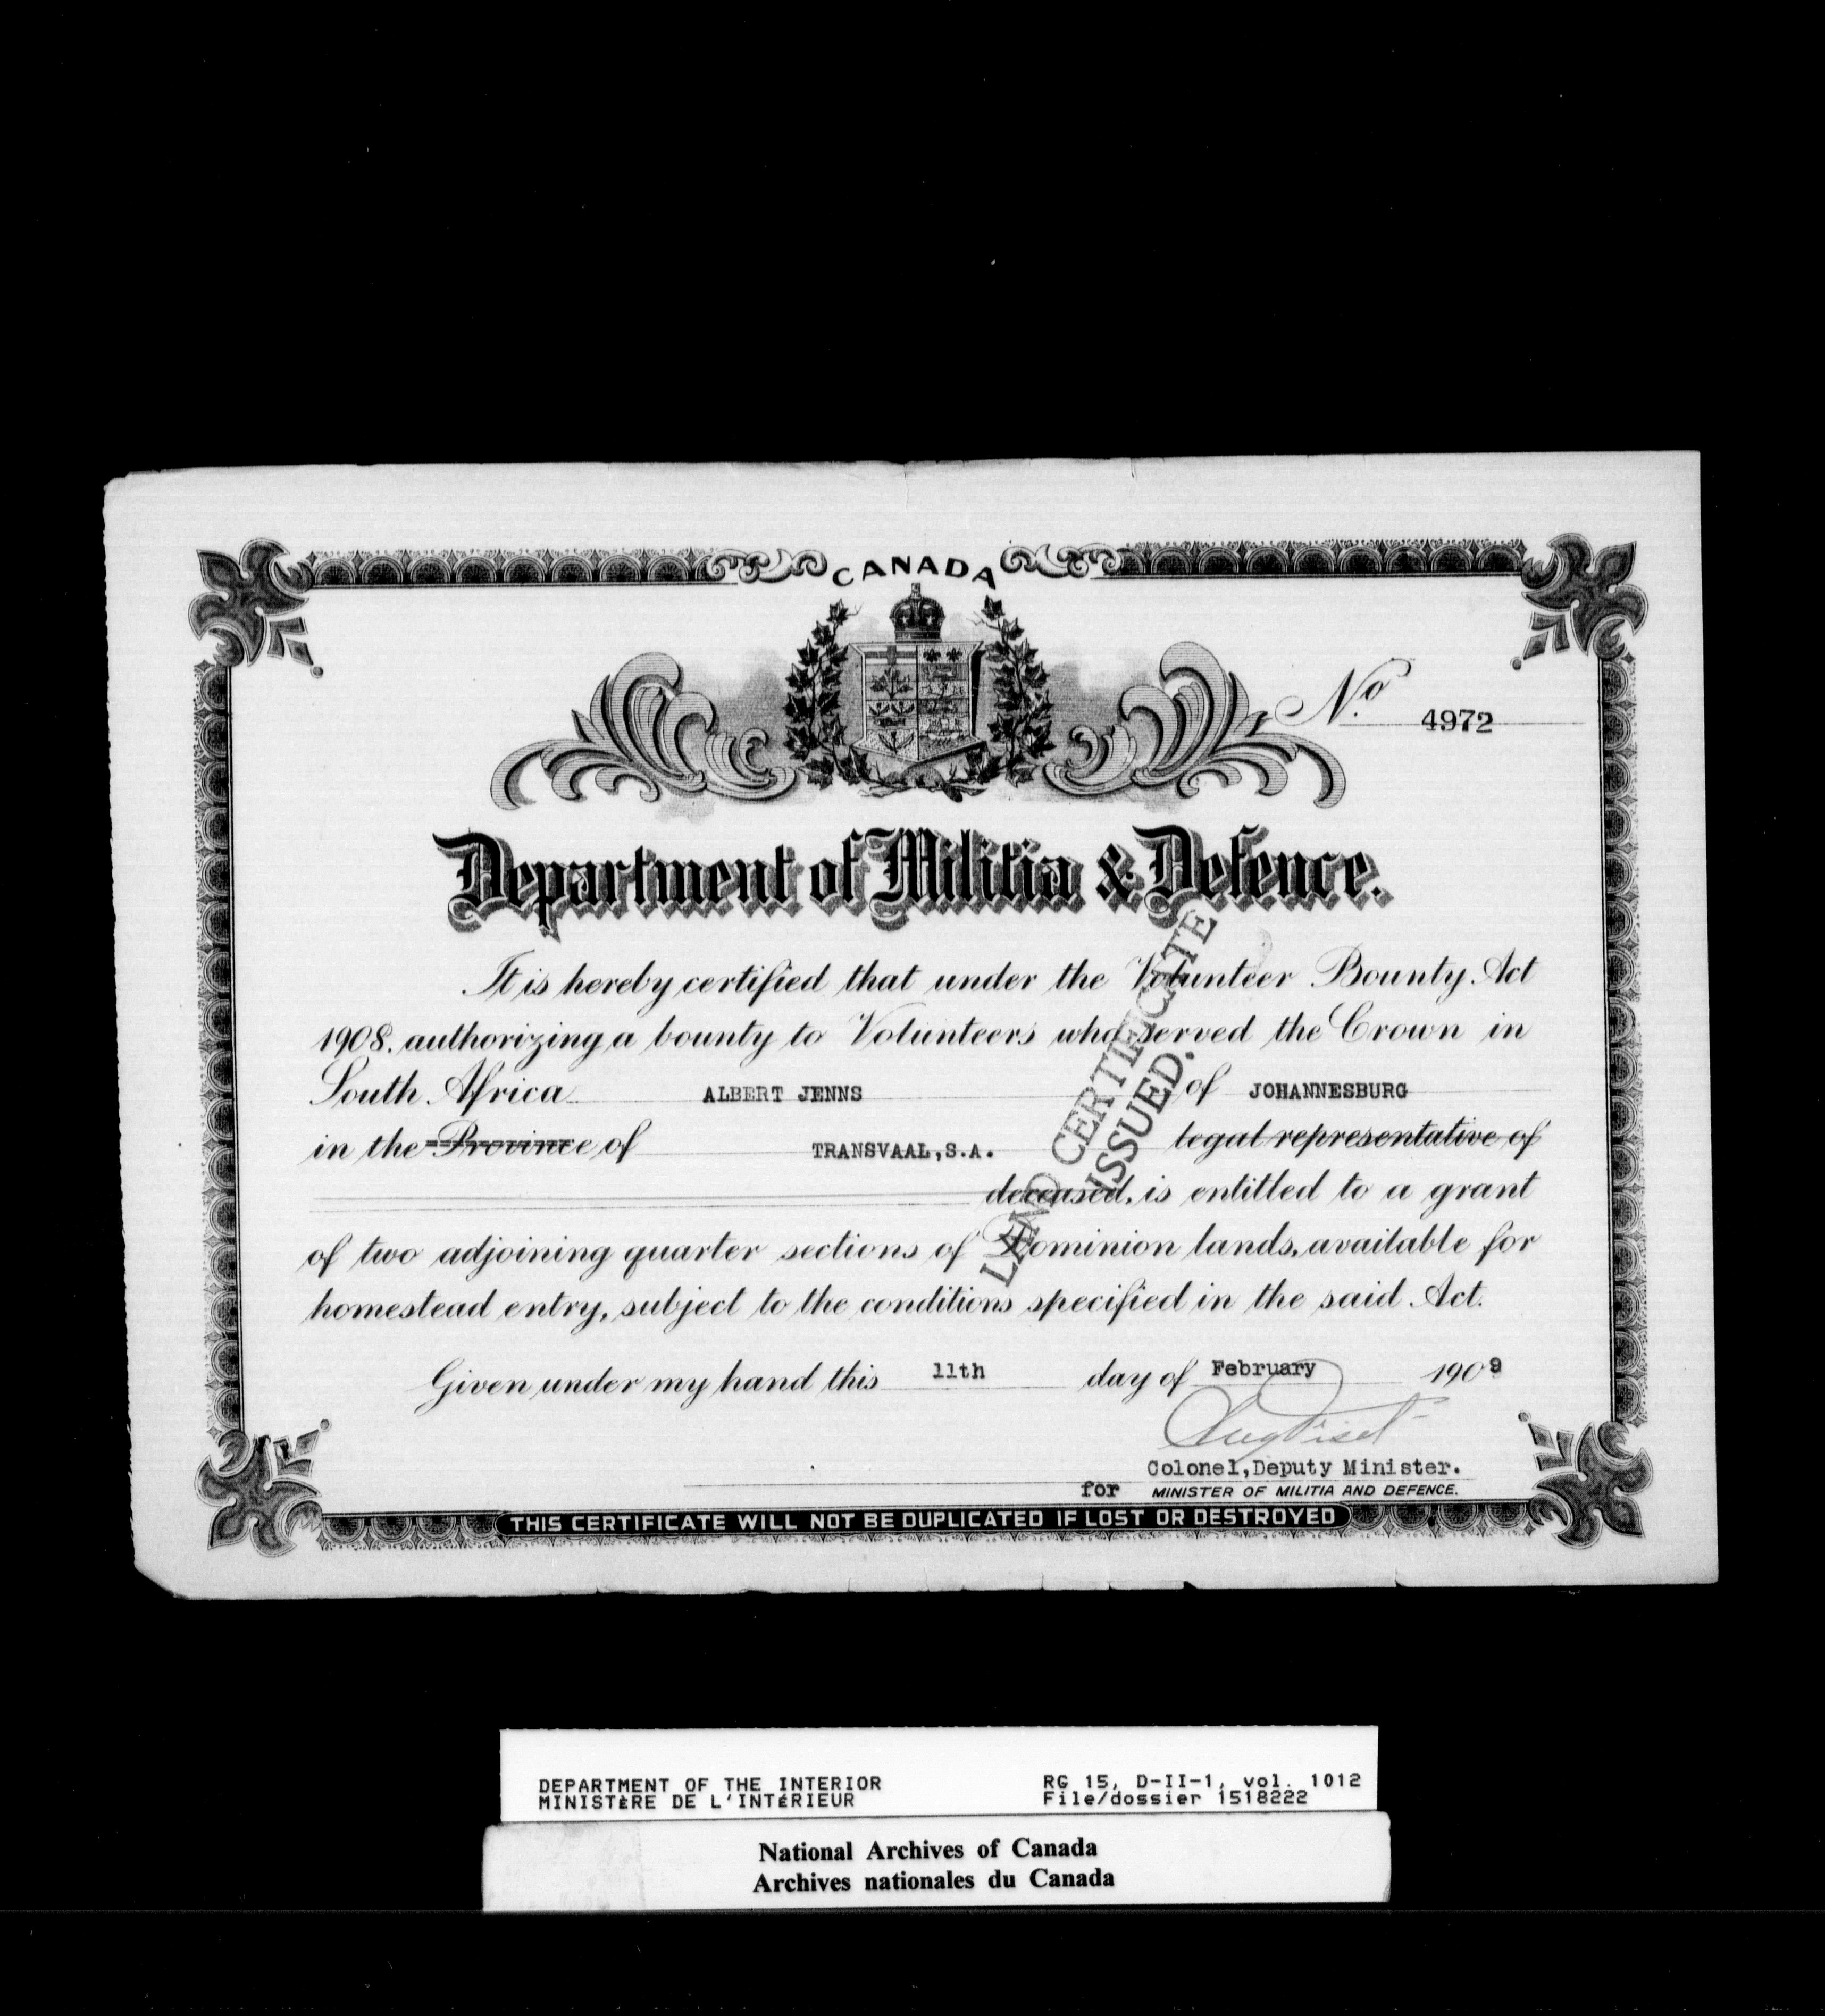 CANADA
No. 4972
Department of Militia & Defence.
It is hereby certified that under the Volunteer Bounty Act
1908. authorizing a bounty to Volunteers who served the Crown in
South Africa ALBERT JENNS of JOHANNESBURG
in the Province of TRANSVAAL,S.A. legal representative of
deceased, is entitled to a grant
of two adjoining quarter sections of Dominion lands, available for
homestead entry, subject to the conditions specified in the said Act.
LAND CERTIFICATE
ISSUED.
Given under my hand this 11th day of February 1909
Eug Fiset
Colonel,Deputy Minister.
for MINISTER OF MILITIA AND DEFENCE.
THIS CERTIFICATE WILL NOT BE DUPLICATED IF LOST OR DESTROYED
DEPARTMENT OF THE INTERIOR RG 15, D-II-1, vol. 1012
MINISTÈRE DE L'INTÉRIEUR File/dossier 1518222
National Archives of Canada
Archives nationales du Canada